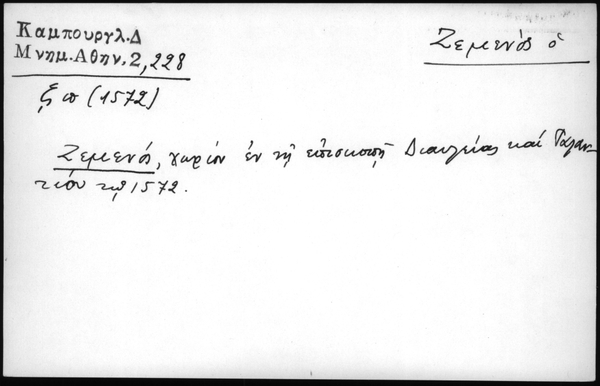 Καμπουργλ.Δ
Μνημ.Αθην.2,228
Ζεμενός ὁ
ξ ϖ (1572)
Ζεμενό, χωρίον ἐν τῇ ἐπισκοπῇ Διαυλείας καί Ταλαν-
τίου τῷ 1572.